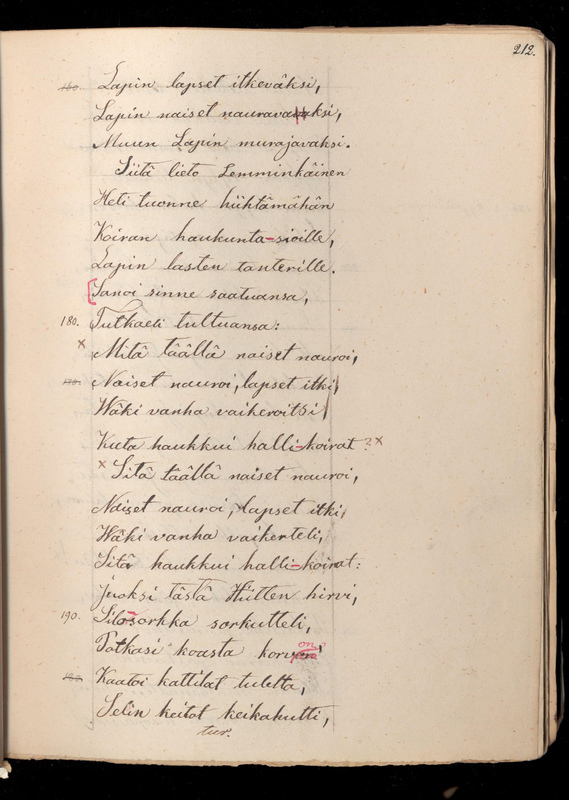 212.
160. Lapin lapset itkeväksi,
Lapin naiset nauravaksi,
Muun Lapin murajavaksi.
Siitä lieto Lemminkäinen
Heti tuonne hiihtämähän
Koiran haukunta-sioille,
Lapin lasten tanterille.
Sanoi sinne saatuansa,
180. Tutkaeli tultuansa:
x Mitä täällä naiset nauroi,
Naiset nauroi, lapset itki,
Wäki vanha vaikeroitsi,
Kuta haukkui halli-koirat? x
x Sitä täällä naiset nauroi,
Naiset nauroi, lapset itki,
Wäki vanha vaikerteli,
Sitä haukkui halli-koirat:
Juoksi tästä Hiitten hirvi,
190. Silosorkka sorkutteli,
Potkasi koasta korvon,
Kaatoi kattilat tulelta,
Selin keitot keikahutti,
tur.